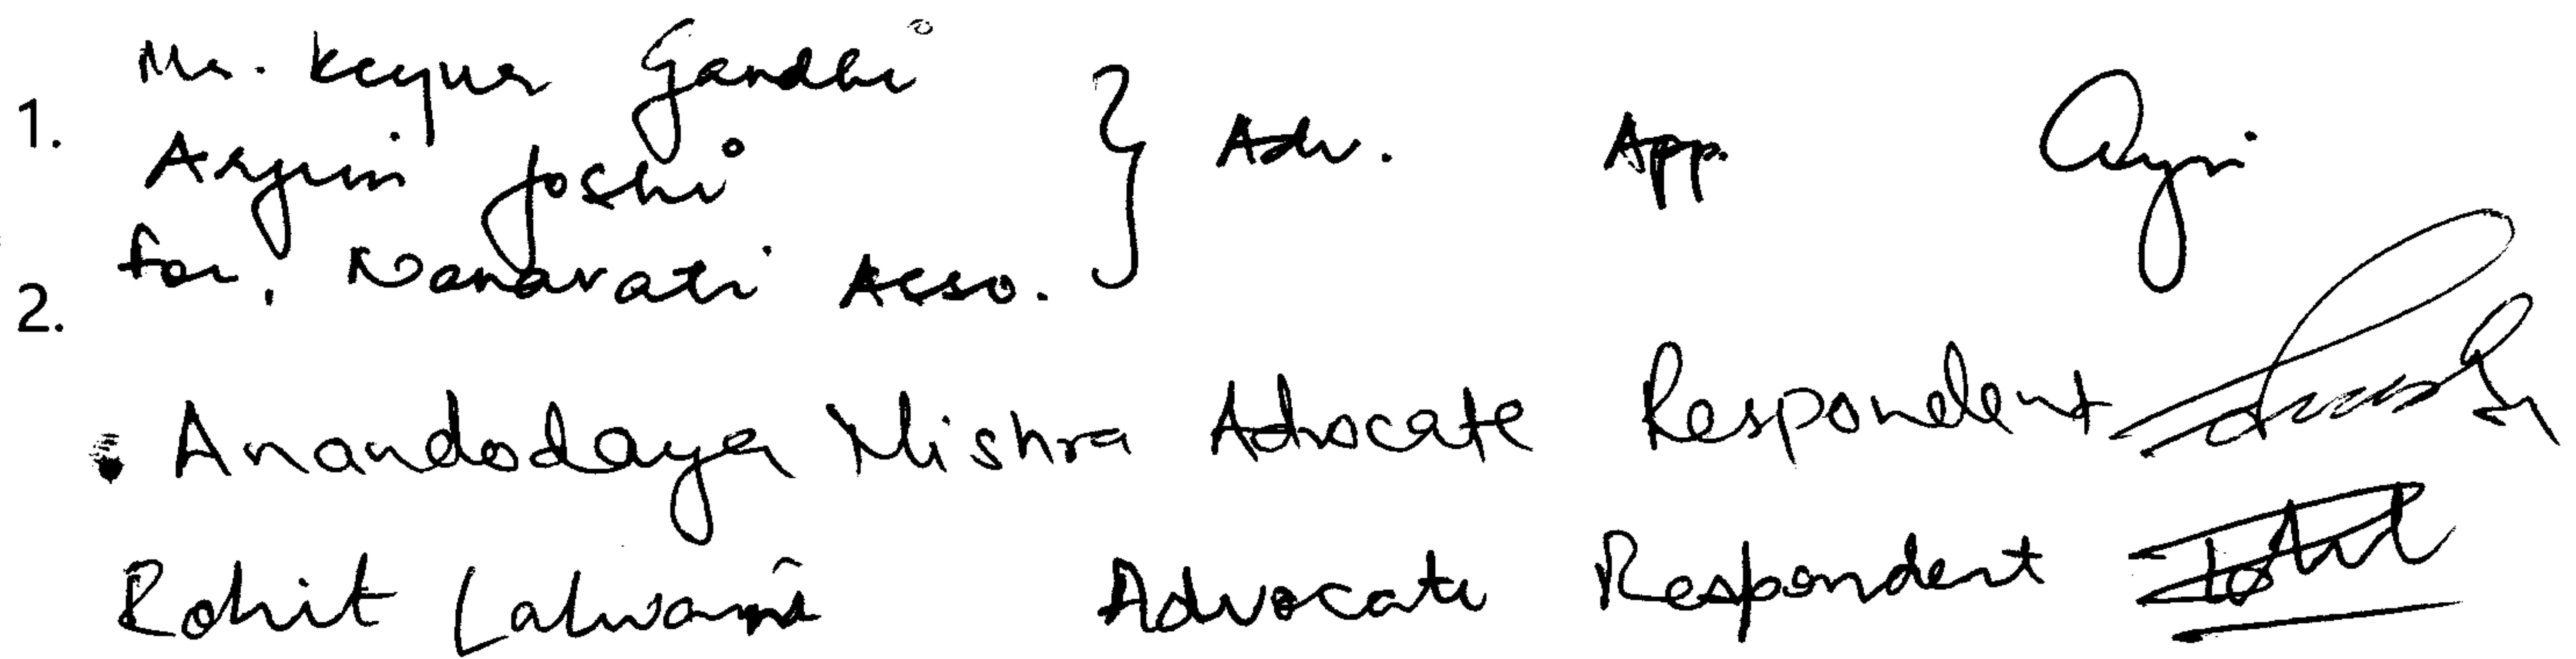 Mr. Keyur Gandhi
1. Arjun Joshi } Adv. App.
for, Nanavati Asso.
2.
Anandodaya Mishra Advocate Respondent
Rohit Lalwani Advocate Respondent